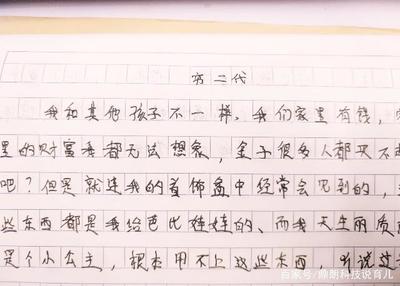 穷二代
我和其他孩子不一样，我们家里有钱，
里的财富我都无法想象，金子很多人都买不
吧？但是就连我的首饰盒中经常会见到的，
些东西都是我给芭比娃娃的、而我天生丽质
是个小公主，根本用不上这些东西，听说过
百家号/鼎朗科技说育儿